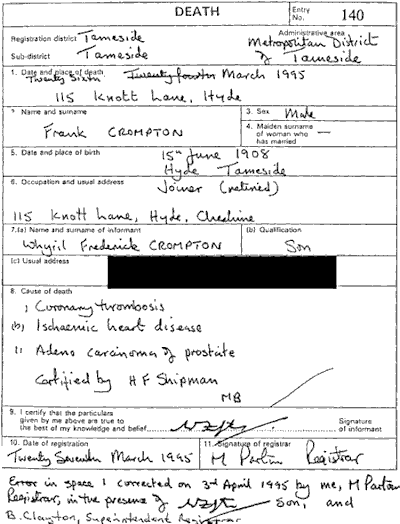 DEATH
Entry No. 140
Registration district Tameside
Administrative area
Sub-district Tameside
Metropolitan District of Tameside
1. Date and place of death Twenty fourth March 1995
Twenty Sixth
115 Knott Lane, Hyde
2. Name and surname
Frank CROMPTON
3. Sex Male
4. Maiden surname of woman who has married —
5. Date and place of birth
15th June 1908
Hyde Tameside
6. Occupation and usual address
Joiner (retired)
115 Knott Lane, Hyde, Cheshire
7.(a) Name and surname of informant
Whyril Frederick CROMPTON
(b) Qualification
Son
(c) Usual address
8. Cause of death
I Coronary thrombosis
(b) Ischaemic heart disease
II Adeno carcinoma of prostate
Certified by H F Shipman
MB
9. I certify that the particulars
given by me above are true to
the best of my knowledge and belief
Signature
of informant
10. Date of registration
Twenty Seventh March 1995
11. Signature of registrar
M Partin Registrar
Error in space 1 corrected on 3rd April 1995 by me, M Partin
Registrar, in the presence of Son, and
B. Clayton, Superintendent Registrar